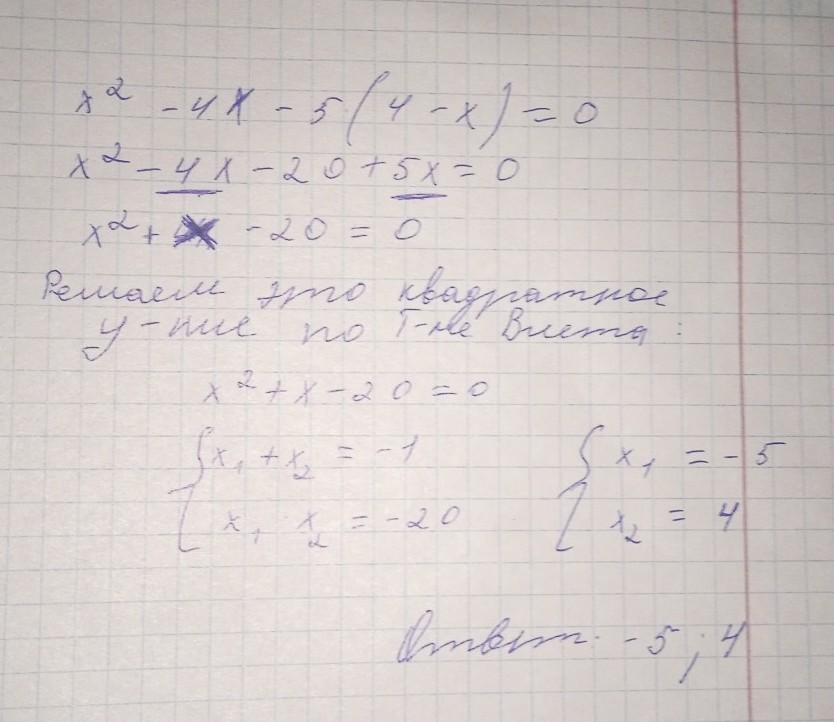 x² - 4x - 5(4 - x) = 0
x² - 4x - 20 + 5x = 0
x² + x - 20 = 0
Решаем это квадратное
у-ние по Т-ме Виета:
x² + x - 20 = 0
{ x₁ + x₂ = -1 { x₁ = -5
x₁ · x₂ = -20 x₂ = 4
Ответ: -5; 4